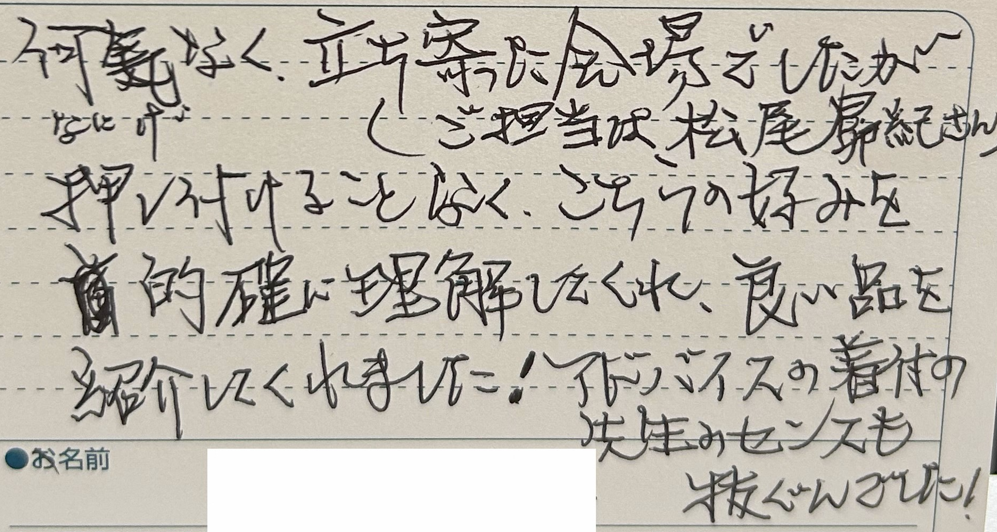 何気なく、立ち寄った会場でしたが
なにげ
(ご担当は、松尾昴紀さん)
押し付けることなく、こちらの好みを
的確に理解してくれ、良い品を
紹介してくれました!アドバイスの着付の
先生のセンスも
抜ぐんでした!
●お名前